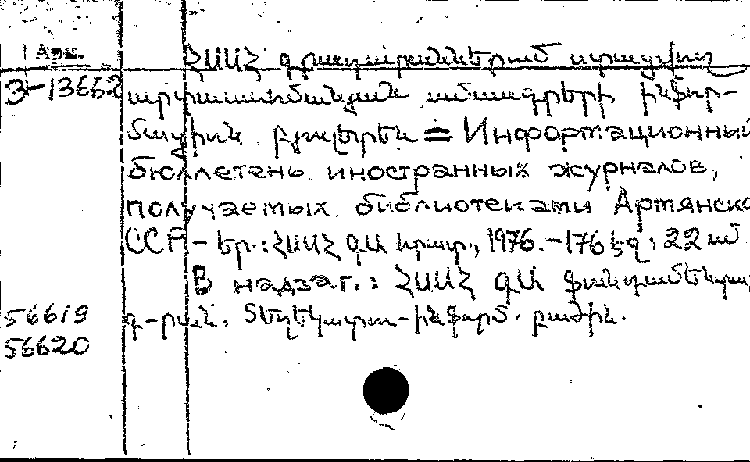 Арм.
ՀՍՍՀ գրադարաններում ստացվող
3-13652 արտասահմանյան ամսագրերի ինֆոր-
մացիոն բյուլետեն = Информационный
бюллетень иностранных журналов,
получаемых библиотеками Армянской
ССР - Եր.: ՀՍՍՀ ԳԱ հրատ., 1976. -176 էջ; 22 սմ.
В надзаг.: ՀՍՍՀ ԳԱ ֆունդամենտալ
56619 գ-րան. Տեղեկատու-ինֆորմ. բաժին.
56620